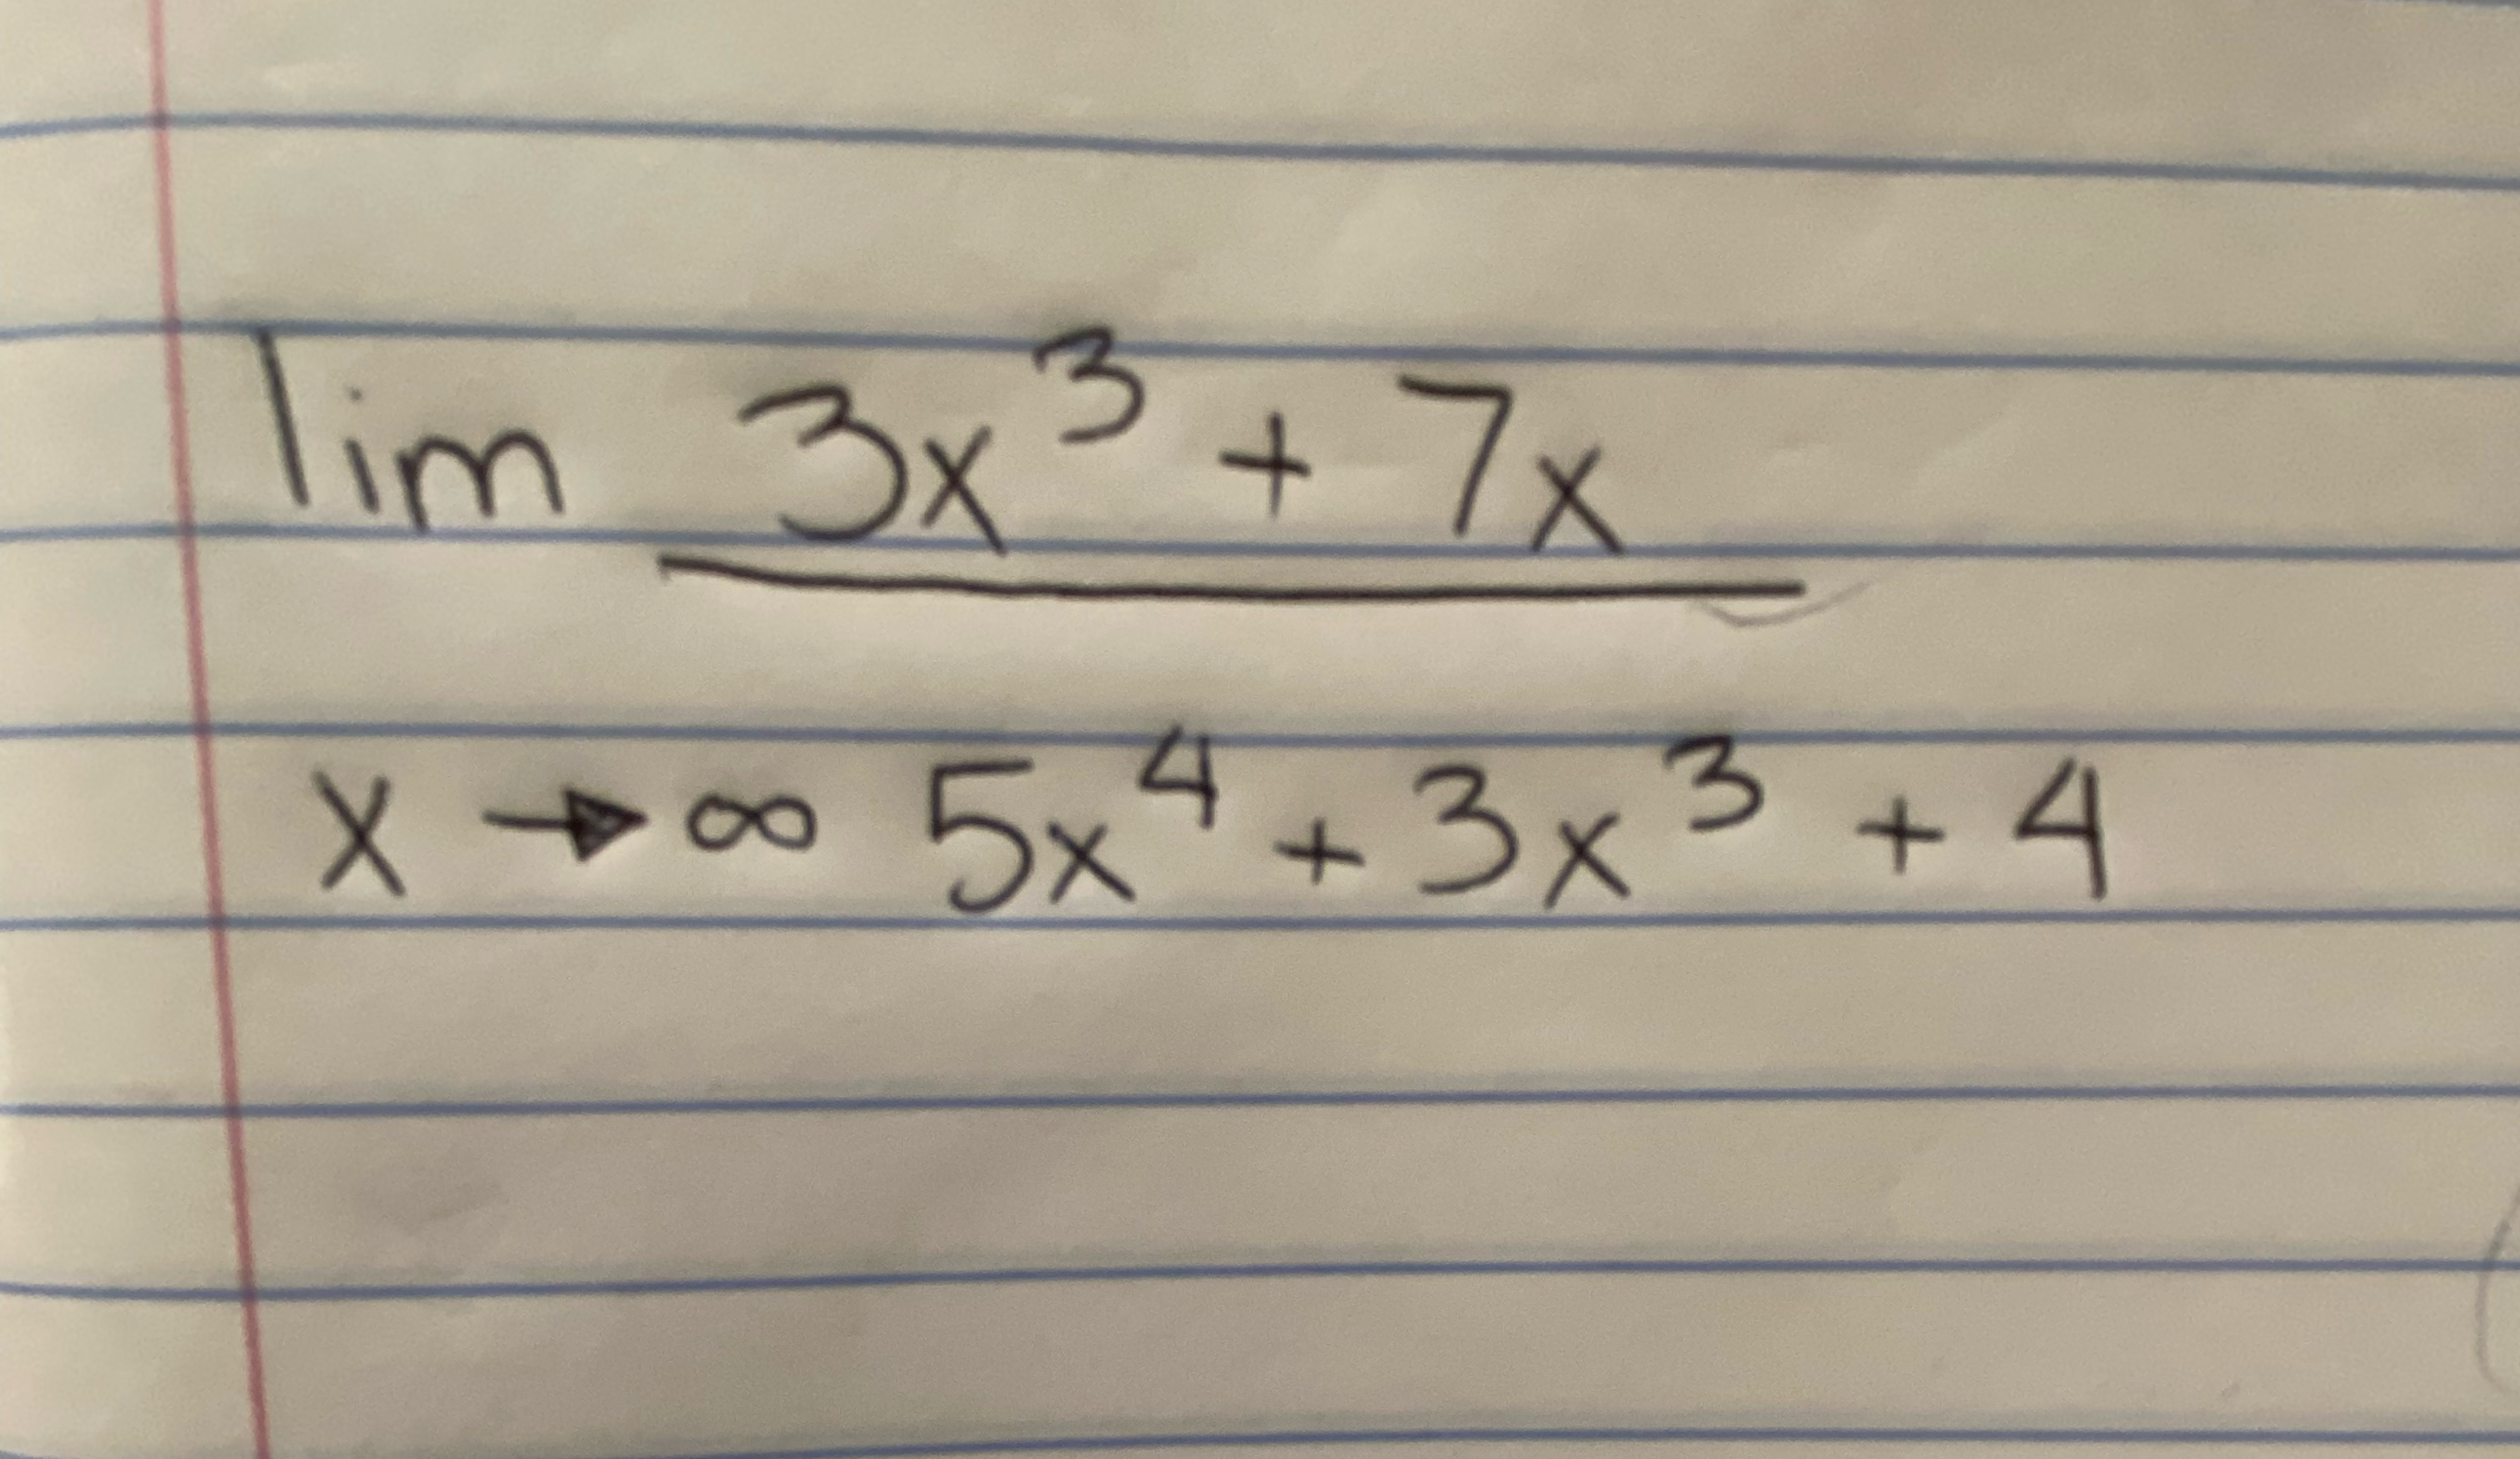 lim 3x³ + 7x
x → ∞ 5x⁴ + 3x³ + 4